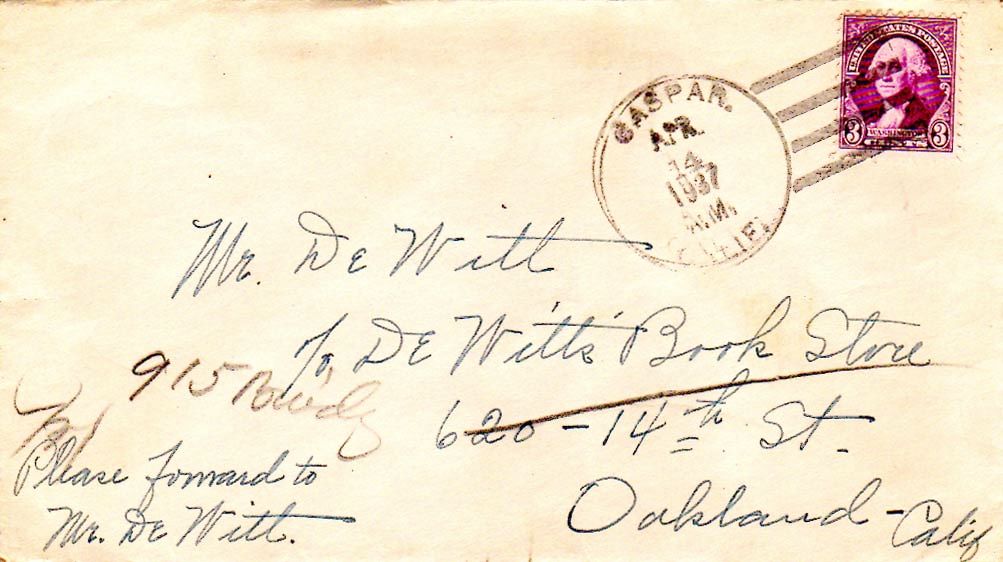 UNITED STATES POSTAGE
3 WASHINGTON 3
CENTS
CASPAR.
APR
14
1937
A.M.
CALIF.
Mr. De Witt
c/o De Witt's Book Store
915 Brdy
620 - 14th St.
Please forward to
Mr. De Witt.
Oakland - Calif